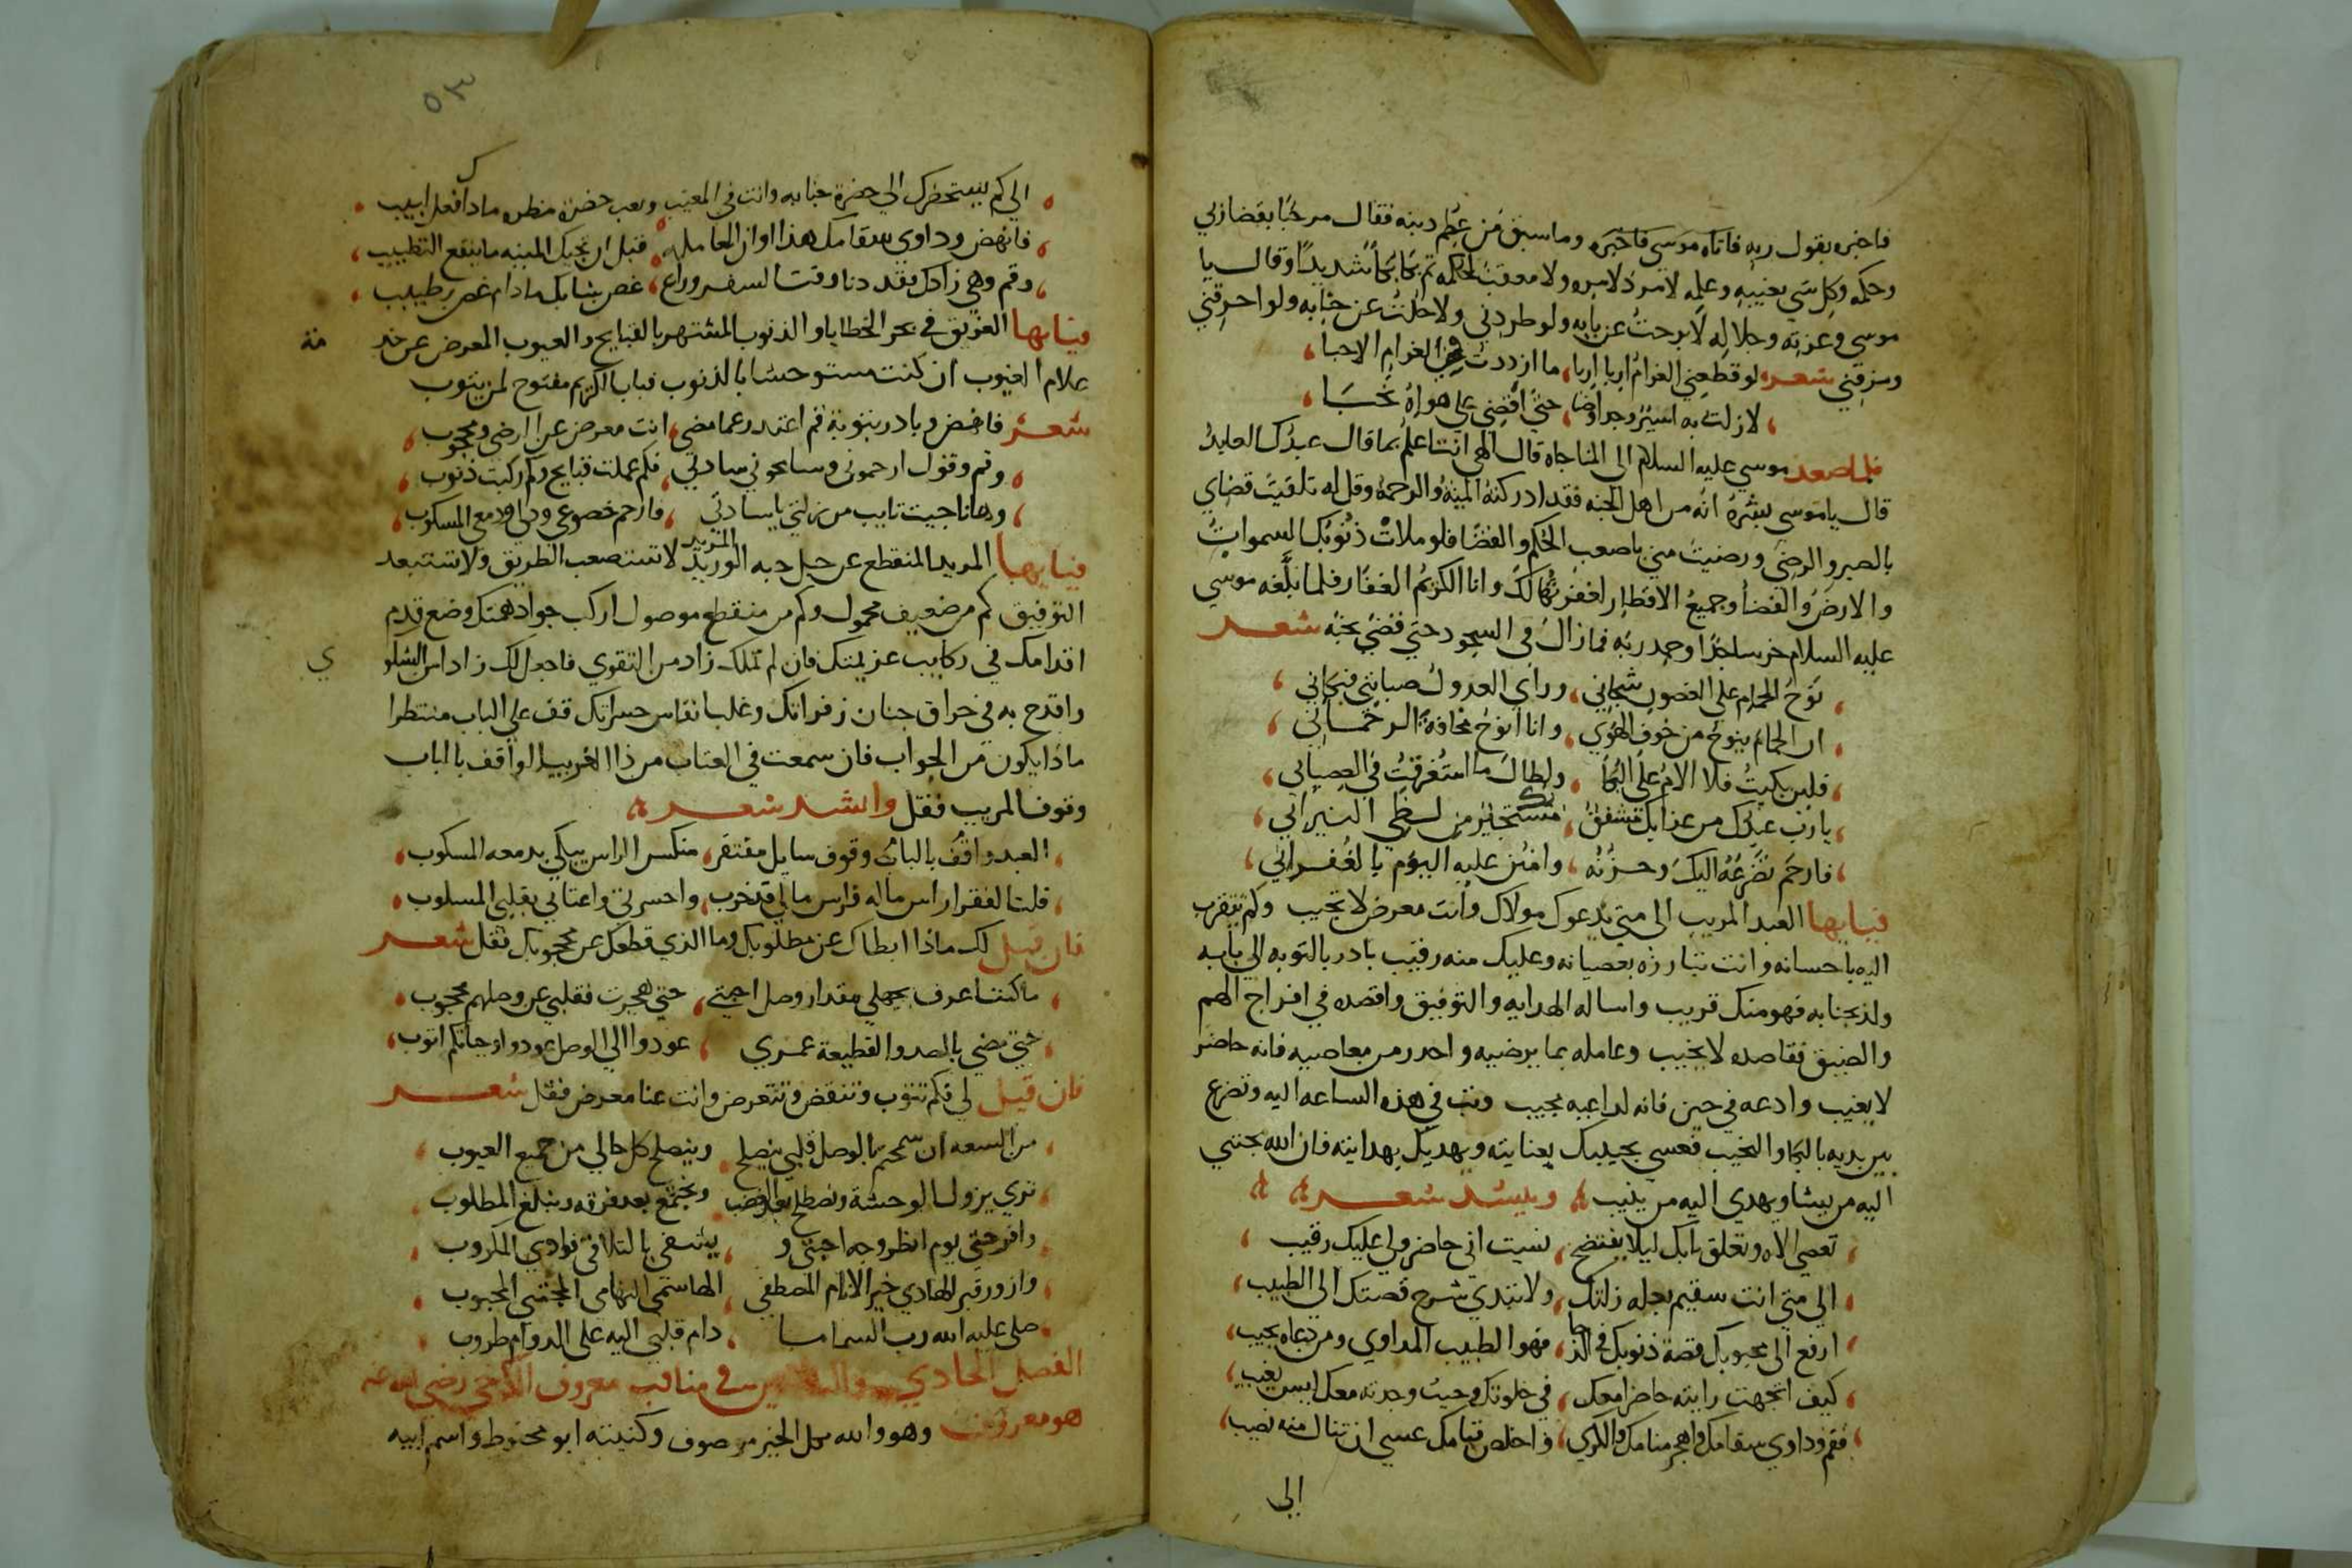 فاخبره بقول ربه فاتاه موسى فاخبره وما سبق من عظم دينه فقال مرحبا بقضا ربي
وحكمه وكل شي بغيبه وعلمه لا مرد لامره ولا معقب لحكمه ثم بكا بكاً شديداً وقال يا
موسى وعزته وجلاله لا برحت عن بابه ولو طردني ولا حلت عن جنابه ولو احرقني
ومزقني شعر لو قطعني الغرام اربا اربا، ما ازددت في الغرام الا حبا،
لا زلت به اسير وجد وضنا، حتى اقضي على هواه نحبا،
فلما صعد موسي عليه السلام الى المناجاه قال الهي انت اعلم بما قال عبدك العابد
قال يا موسى بشره انه من اهل الجنه فقد ادركته المنه والرحمه وقل له تلقيت قضاي
بالصبر والرضى ورضيت مني باصعب الحكم والقضا فلو ملات ذنوبك السموات
والارض والفضا وجميع الاقطار لغفرتها لك وانا الكريم الغفار فلما بلغه موسي
عليه السلام خر ساجدا وحمد ربه فما زال في السجود حتي قضي نحبه شعر
نوح الحمام على الغصون شجاني، وراي العدول صبابتي فبكاني،
ان الحمام ينوح من خوف الهوي، وانا انوح مخافة الرحماني،
فلين بكيت فلا الام على البكا، ولطال ما استغرقت في العصياني،
يا رب عبدك من عذابك مشفق، بك مستجير من لظي النيراني،
فارحم تضرعه اليك وحزنه، وامنن عليه اليوم بالغفراني،
فيا ايها العبد المريب الى متى يدعوك مولاك وانت معرض لا تجيب وكم يتقرب
اليه باحسانه وانت تبارزه بعصيانه وعليك منه رقيب بادر بالتوبه الي بابه
ولذ بجنابه فهو منك قريب واساله الهدايه والتوفيق واقصده في افراج الهم
والضيق فقاصده لا يخيب وعامله بما يرضيه واحدر من معاصيه فانه حاضر
لا يغيب وادعه في حين فانه لداعيه مجيب وتب في هذه الساعه اليه وتضرع
بين يديه بالبكا والنحيب فعسي يجيبك بعنايته ويهديك بهدايته فان الله يجتبي
اليه من يشا ويهدي اليه من ينيب وينشد شعر
تعصي الاه وتغلق بابك ليلا يفتضح، نسيت اني حاضر وانا عليك رقيب،
الي متي انت سقيم بجله زلتك، ولا تبدي شرح قصتك الى الطبيب،
ارفع الى محبوبك قصة ذنوبك في الدجا، فهو الطبيب المداوي ومن دعاه يجيب،
كيف اتجهت رايته حاضرا معك، في خلوتك وحيث وجدته معك ليس يغيب،
فقم وداوي سقامك واهجر منامك والكري، واخلص قيامك عسي ان تنال منه نصيب،
الى
٥٣
الي كم يستحضرك الي حضرة جنابه وانت في المغيب
فانهض وداوي سقامك هذا اوان المعامله، قبل ان تجيك المنيه ما ينفع التطبيب،
وقم وهي زادك فقد دنا وقت السفر وراع، غصن شبابك ما دام غصن رطيب،
فيا ايها الغريق في بحر الخطايا والذنوب المشتهر بالقبايح والعيوب المعرض عن خدمة
علام الغيوب ان كنت مستوحشا بالذنوب فباب الكريم مفتوح لمن يتوب
شعر فانهض وبادر بتوبة قم اعتدر عما مضي، انت معرض عن الرضي ومحجوب،
وقم وقول ارحموني وسامحوني سادتي، فكم عملت قبايح وكم ركبت ذنوب،
وها انا جيت تايب من زلتي يا سادتي، فارحم خضوعي ودلي ودمعي المسكوب،
فيا ايها المريد المنقطع عن حبل حبه الوريد لا تستصعب الطريق ولا تستبعد
التوفيق كم من ضعيف محمول وكم من منقطع موصول اركب جواد همتك وضع قدم
اقدامك في ركايب عزيمتك فان لم تملك زاد من التقوي فاجعل لك زادا من الشكوي
واقدح به في حراق جنان زفراتك وغلب انفاس حسراتك قف علي الباب منتظرا
ماذا يكون من الجواب فان سمعت في العتاب من ذا الغريب الواقف بالباب
وقوف المريب فقل وانشد شعر
العبد واقف بالباب وقوف سايل مفتقر، منكسر الراس يبكي بدمعه المسكوب،
قلت الفقرا راس ماله فراس مالي قد خرب، واحسرتي واعتابي بقلبي المسلوب،
فان قيل لك ماذا ابطاك عن مطلوبك وما الذي قطعك عن محبوبك فقل شعر
ما كنت اعرف بجهلي مقدار وصل احبتي، حتي هجرت فقلبي عن وصلهم محجوب،
حتي مضي بالصد والقطيعة عمري، عودوا الي الوصل عودوا ارجاكم اتوب،
فان قيل لي فكم تتوب وتنقض وتتعرض وانت عنا معرض فقل شعر
من السعه ان سمحتم بالوصل قلبي ينصلح، وينصلح كل حالي من جميع العيوب
تري يزول الوحشة ونصطلح بعد الغضب، ونجتمع بعد فرقه ونبلغ المطلوب
وافرحتي يوم انظر وجه احبتي و، يشتفي بالتلاقي فوادي المكروب
وازور قبر الهادي خير الانام المصطفي، الهاشمي التهامي المجتبي المحبوب
صلى عليه الله رب السما ما، دام قلبي اليه على الدوام طروب
الفصل الحادي في مناقب معروف الكرخي رضي الله عنه
هو معروف وهو والله بكل الخير موصوف وكنيته ابو محفوظ واسم ابيه